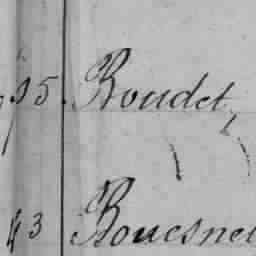 15 Roudet,
43 Rouesnel